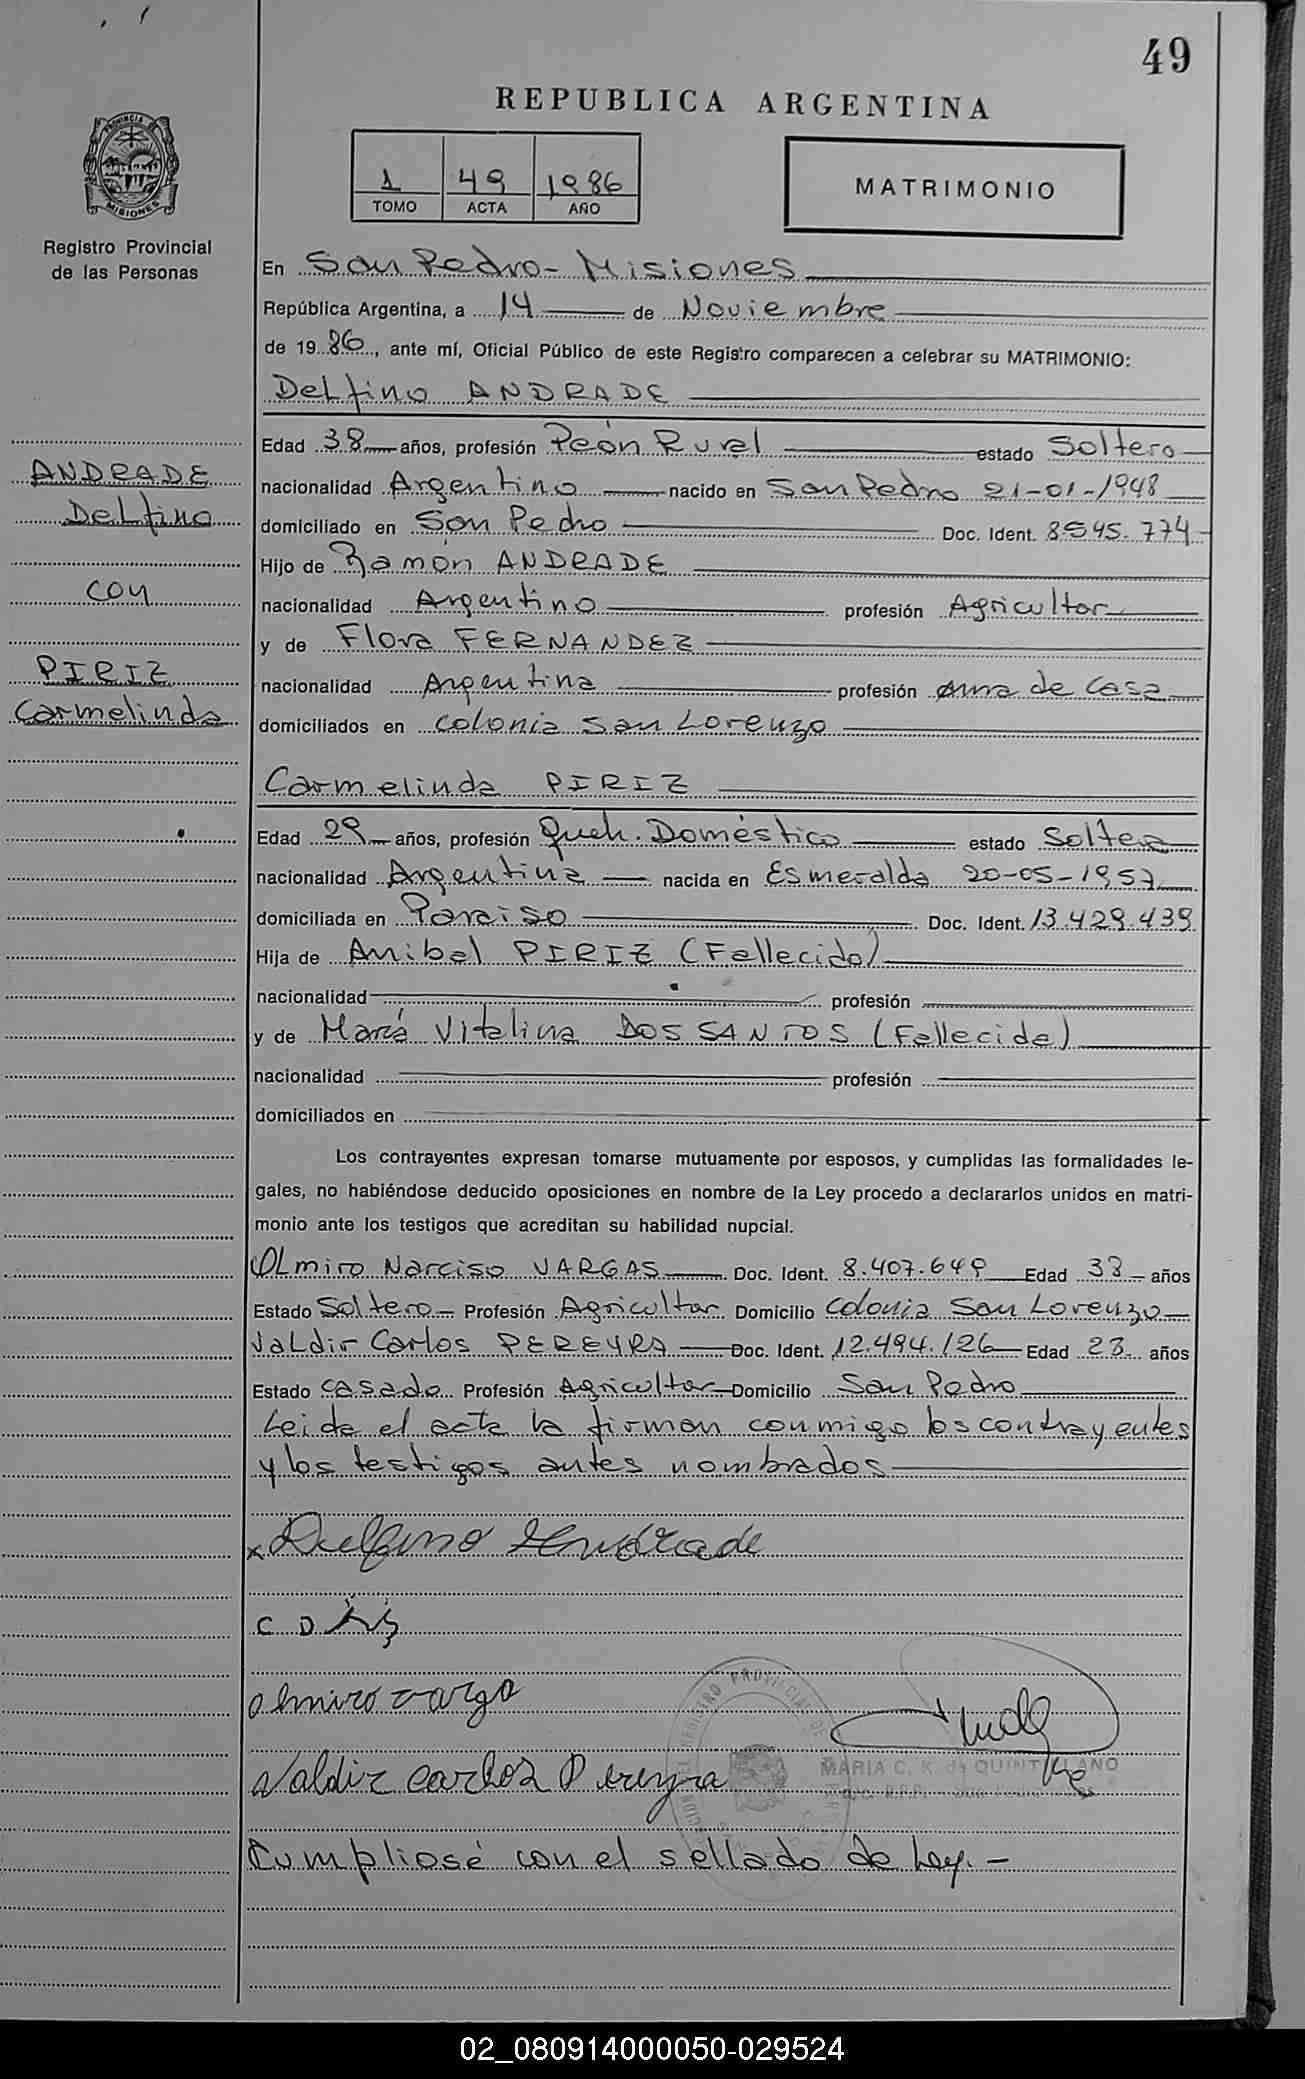 49
REPUBLICA ARGENTINA
PROVINCIA DE
MISIONES
Registro Provincial
de las Personas
1 49 1986
TOMO ACTA AÑO
MATRIMONIO
En San Pedro - Misiones
República Argentina, a 14 de Noviembre
de 1986, ante mí, Oficial Público de este Registro comparecen a celebrar su MATRIMONIO:
Delfino ANDRADE
Edad 38 años, profesión Peón Rural estado Soltero
ANDRADE
nacionalidad Argentino nacido en San Pedro 21-01-1948
Delfino
domiciliado en San Pedro Doc. Ident. 8.545.774
Hijo de Ramón ANDRADE
con
nacionalidad Argentino profesión Agricultor
y de Flora FERNANDEZ
PIRIZ
nacionalidad Argentina profesión Ama de Casa
Carmelinda
domiciliados en colonia San Lorenzo
Carmelinda PIRIZ
Edad 29 años, profesión Queh. Doméstico estado Soltera
nacionalidad Argentina nacida en Esmeralda 20-05-1957
domiciliada en Paraiso Doc. Ident. 13.429.439
Hija de Anibal PIRIZ (Fallecido)
nacionalidad profesión
y de María Vitalina DOS SANTOS (Fallecida)
nacionalidad profesión
domiciliados en
Los contrayentes expresan tomarse mutuamente por esposos, y cumplidas las formalidades le-
gales, no habiéndose deducido oposiciones en nombre de la Ley procedo a declararlos unidos en matri-
monio ante los testigos que acreditan su habilidad nupcial.
Olmiro Narciso VARGAS Doc. Ident. 8.407.649 Edad 38 años
Estado Soltero Profesión Agricultor Domicilio Colonia San Lorenzo
Valdir Carlos PEREYRA Doc. Ident. 12.494.126 Edad 23 años
Estado casado Profesión Agricultor Domicilio San Pedro
Leida el acta la firman conmigo los contrayentes
y los testigos antes nombrados
x Delfino Andrade
olmiro vargo
Valdir carlos Pereyra
MARIA C. K. de QUINTELANO
Cumpliose con el sellado de Ley.-
02_080914000050-029524